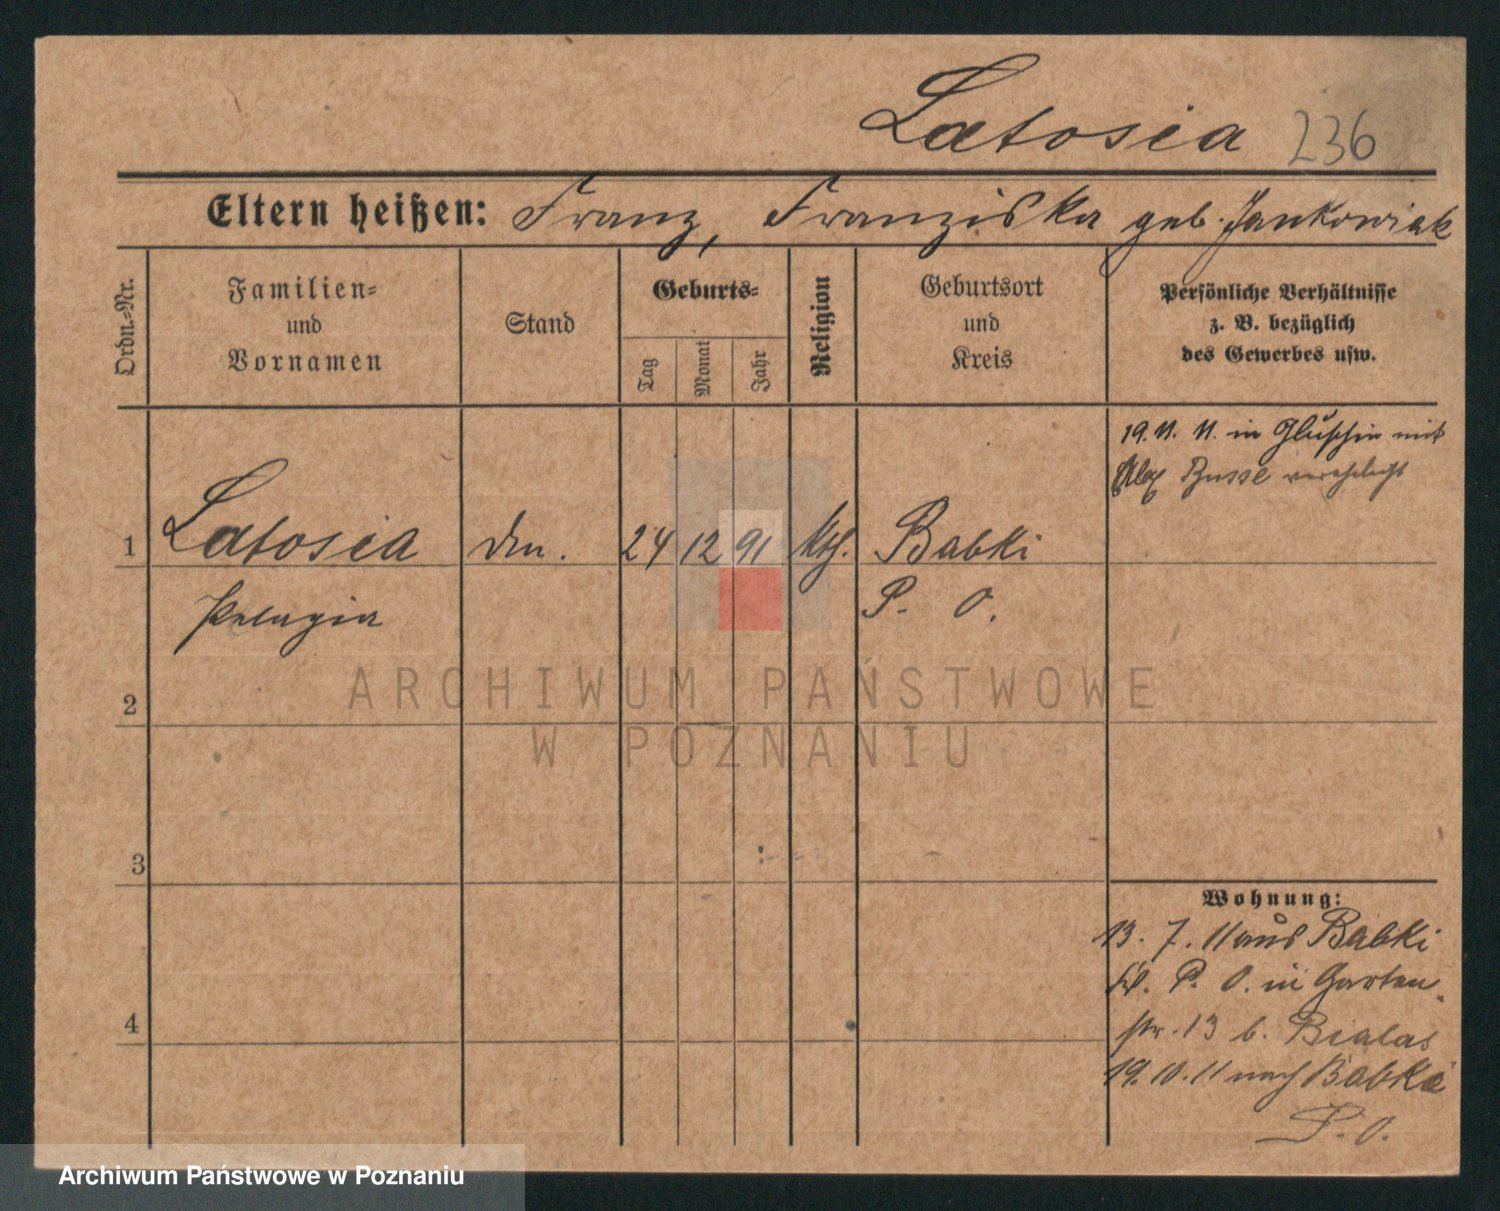 Latosia 236
Eltern heißen: Franz, Franziska geb. Jankowiak
Ordn.-Nr.
Familien-
und
Vornamen
Stand
Geburts-
Tag
Monat
Jahr
Religion
Geburtsort
und
Kreis
Persönliche Verhältnisse
z. B. bezüglich
des Gewerbes usw.
19. 11. 11. in Gluschin mit
Alex Busse verehelicht
1 Latosia 24 12 91 kth. Babki
Pelagia P. O.
ARCHIWUM PAŃSTWOWE
W POZNANIU
2
3
4
Wohnung:
13. 7. 11 aus Babki
P. O. in Garten-
str. 13 b. Bialas
19. 10. 11 nach Babki
P. O.
Archiwum Państwowe w Poznaniu